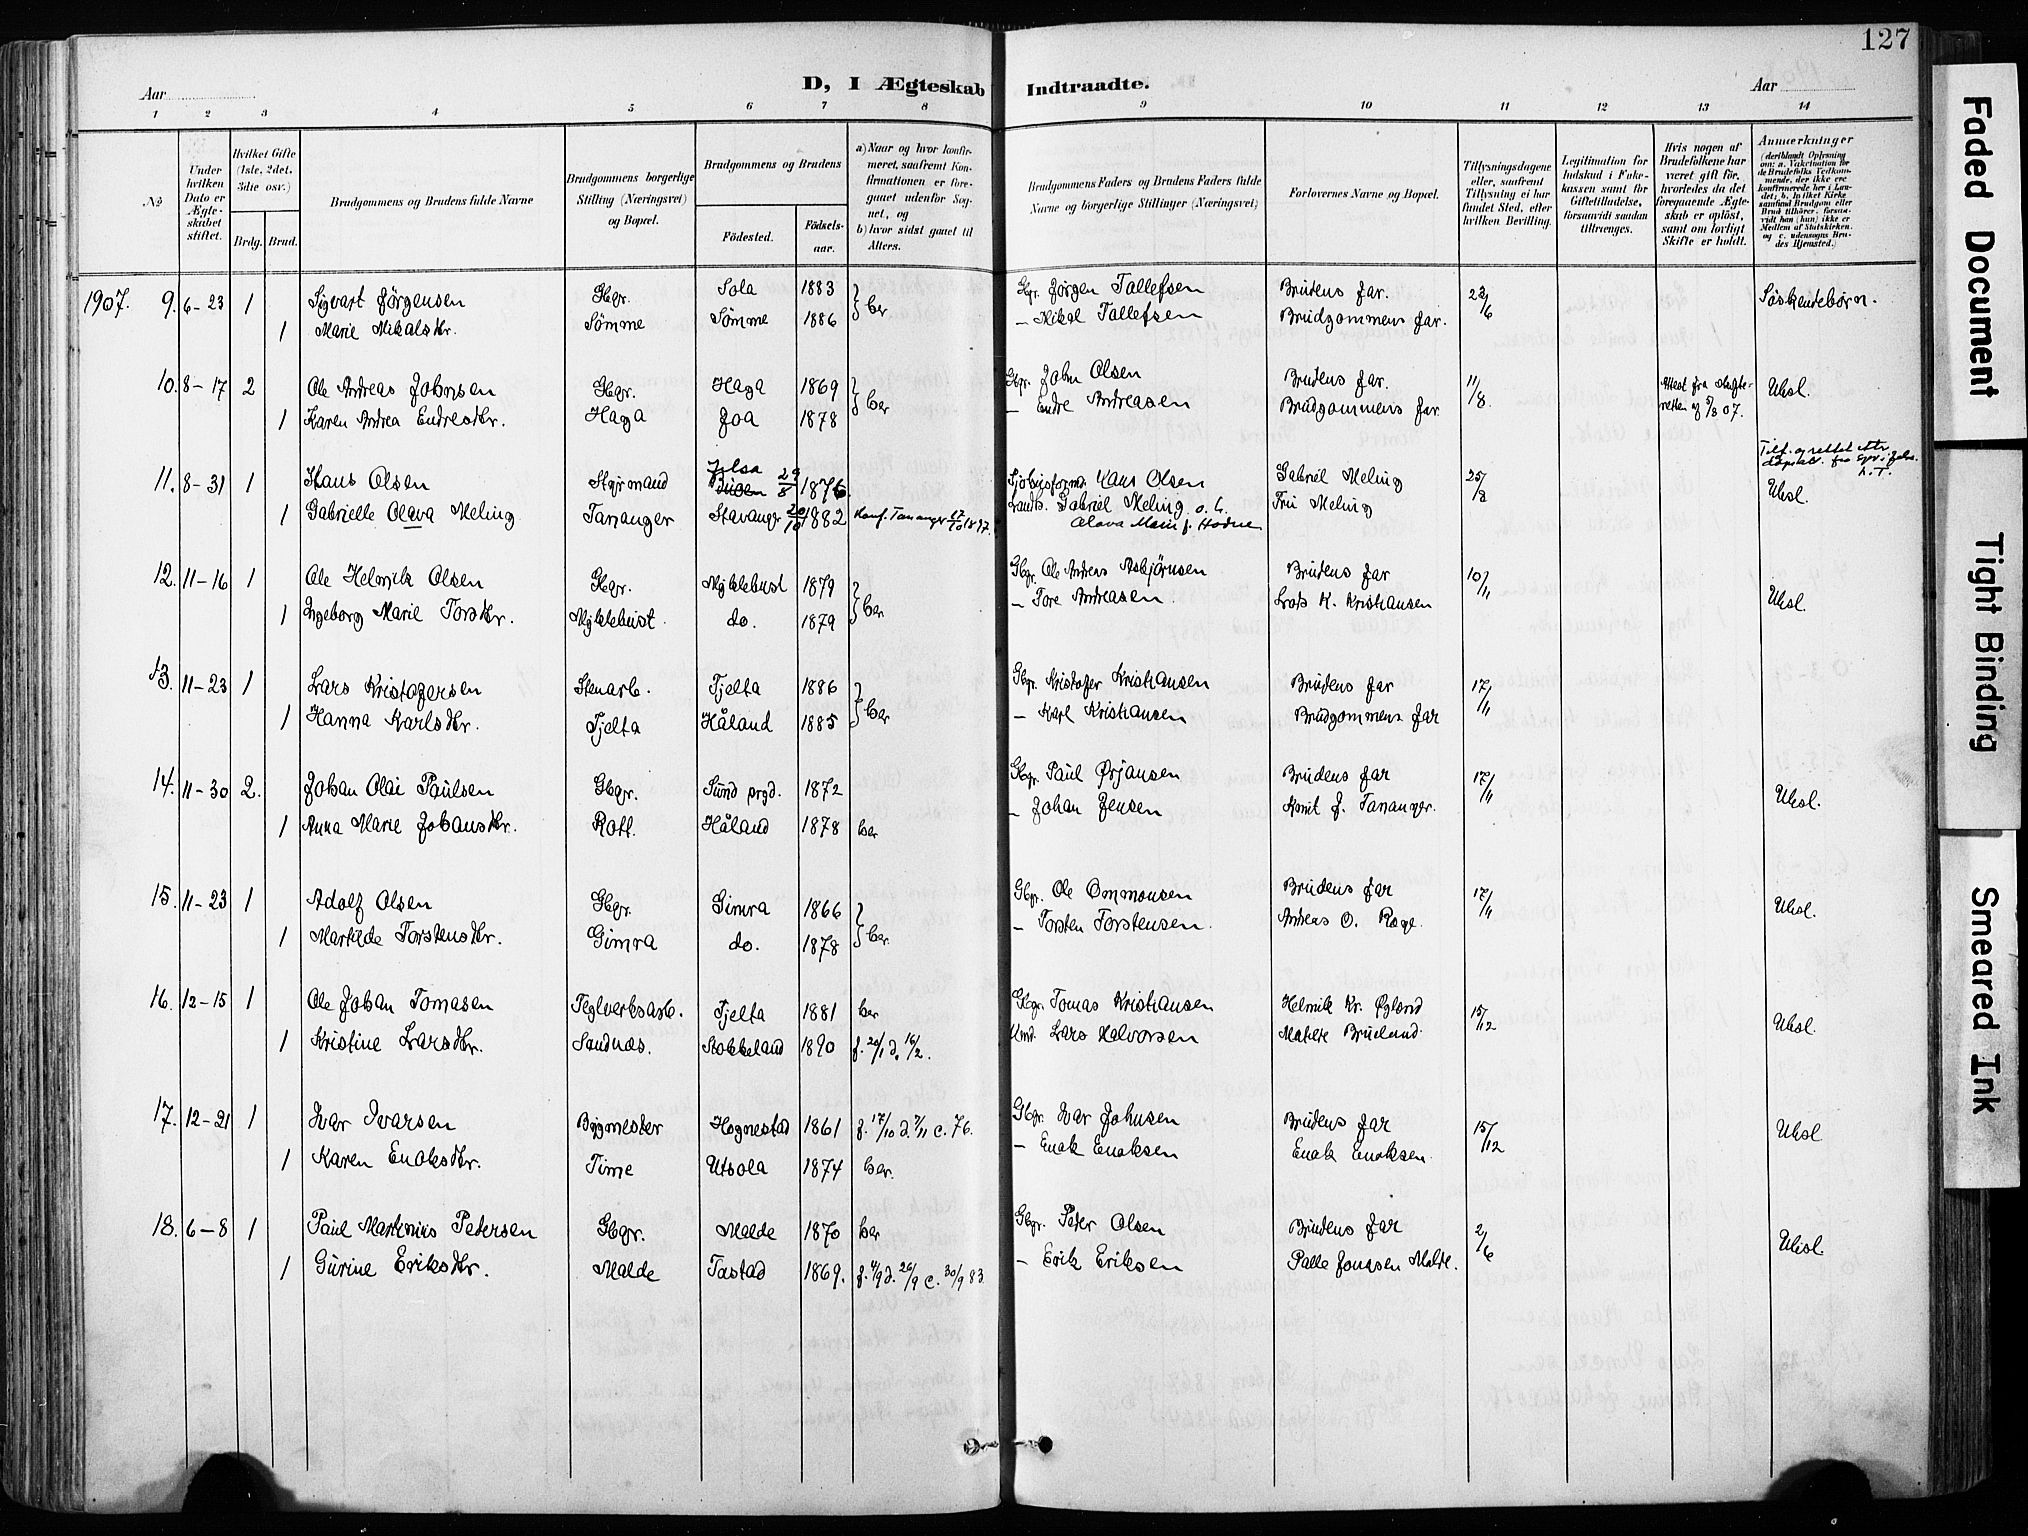 127
Aar
D, I Ægteskab Indtraadte.
Aar
1 2 3 4 5 6 7 8 9 10 11 12 13 14
№
Under hvilken Dato er Ægteskabet stiftet.
Hvilket Gifte (1ste, 2det, 3die osv.)
Brdg. Brud.
Brudgommens og Brudens fulde Navne
Brudgommens borgerlige Stilling (Næringsvei) og Bopæl.
Brudgommens og Brudens
Fødested.
Fødselsaar.
a) Naar og hvor konfirmeret, saafremt Konfirmationen er foregaaet udenfor Sognet, og
b) hvor sidst gaaet til Alters.
Brudgommens Faders og Brudens Faders fulde Navne og borgerlige Stillinger (Næringsvei)
Forlovernes Navne og Bopæl.
Tillysningsdagene eller, saafremt Tillysning ei har fundet Sted, efter hvilken Bevilling.
Legitimation for Indskud i Enkekassen samt for Giftetilladelse, forsaavidt saadan tiltrænges.
Hvis nogen af Brudefolkene har været gift før, hvorledes da det foregaaende Ægteskab er opløst, samt om lovligt Skifte er holdt.
Anmærkninger
(deriblandt Oplysning om: a. Vakcination for de Brudefolks Vedkommende, der ikke ere konfirmerede her i Landet; b. hvilket Kirkesamfund Brudgom eller Brud tilhører, forsaavidt han (hun) ikke er Medlem af Statskirken. og c. udensogns Brudes Hjemsted.)
1907. 9. 6-23 1 Sigvart Jörgensen Gbgr. Sola 1883 her Gbgr. Jörgen Tallefsen Brudens far. 23/6 Söskendebörn.
1 Marie Mikalsdtr. Sömme Sömme 1886 – Mikal Tallefsen Brudgommens far.
10. 8-17 2 Ole Andreas Johnsen Gbgr. Haga 1869 her Gbgr. John Olsen Brudens far. 11/8. Attest fra skifteretten af 5/8 07. Uksl.
1 Karen Andrea Endresdtr. Haga Joa 1878 – Endre Andreasen Brudgommens far
11. 8-31 1 Hans Olsen Styrmand Jelsa 29/8 1876 Hans Olsen Gabriel Meling 25/8 Uksl.
1 Gabrielle Olava Meling Tananger Stavanger 20/10 1882 Konf. Tananger 17/10 1897. Landh. Gabriel Meling o. h. Fru Meling
Olava Marie f. Hodne
12. 11-16 1 Ole Helmik Olsen Gbgr. Myklebust 1879 her Gbgr. Ole Andreas Asbjörnsen Brudens far 10/11 Uksl.
1 Ingeborg Marie Torsdtr. Myklebust do. 1879 – Tore Andreasen Lars K. Kristiansen
13. 11-23 1 Lars Kristofersen Stenarb. Tjelta 1886 her Gbgr. Kristofer Kristiansen Brudens far 17/11
1 Hanna Karlsdtr. Tjelta Håland 1885 – Karl Kristiansen Brudgommens far
14. 11-30 2. Johan Olai Paulsen Gbgr. Sund prgd. 1872 Gbgr. Paul Ørjansen Brudens far 17/11 Uksl.
1 Anna Marie Johansdtr. Rott. Håland 1878 her – Johan Jensen Tananger.
15. 11-23 1 Adolf Olsen Gbgr. Gimra 1866 her Gbgr. Ole Ommonsen Brudens far 17/11 Uksl.
1 Martilde Torstensdtr. Gimra do. 1878 – Torsten Torstensen. Andreas O. Rege.
16. 12-15 1 Ole Johan Tomasen Teglverksarb. Tjelta 1881 her Gbgr. Tomas Kristiansen Helmik Kr. Øgland 15/12 Uksl.
1 Kristine Larsdtr. Sandnæs. Stokkeland 1890 f. 20/1 d. 16/2. Lars Halvorsen Malene Brueland
17. 12-21 1 Ivar Ivarsen Bygmester Hognestad 1861 f. 17/10 d. 7/11 c. 76. Gbgr. Ivar Johnsen Brudens far 15/12 Uksl
1 Karen Enoksdtr. Time Utsola 1874 her. – Enok Enoksen Enok Enoksen.
18. 6-8 1 Paul Martinius Petersen Gbgr. Malde 1870 her Gbgr. Peter Olsen Brudens far 2/6 Uksl.
1 Gurine Eriksdtr. Malde Tastad 1869. f. 4/9 d. 26/9 c. 30/9 83. – Erik Eriksen Palle Jonassen Malde.
Faded Document
Tight Binding
Smeared Ink